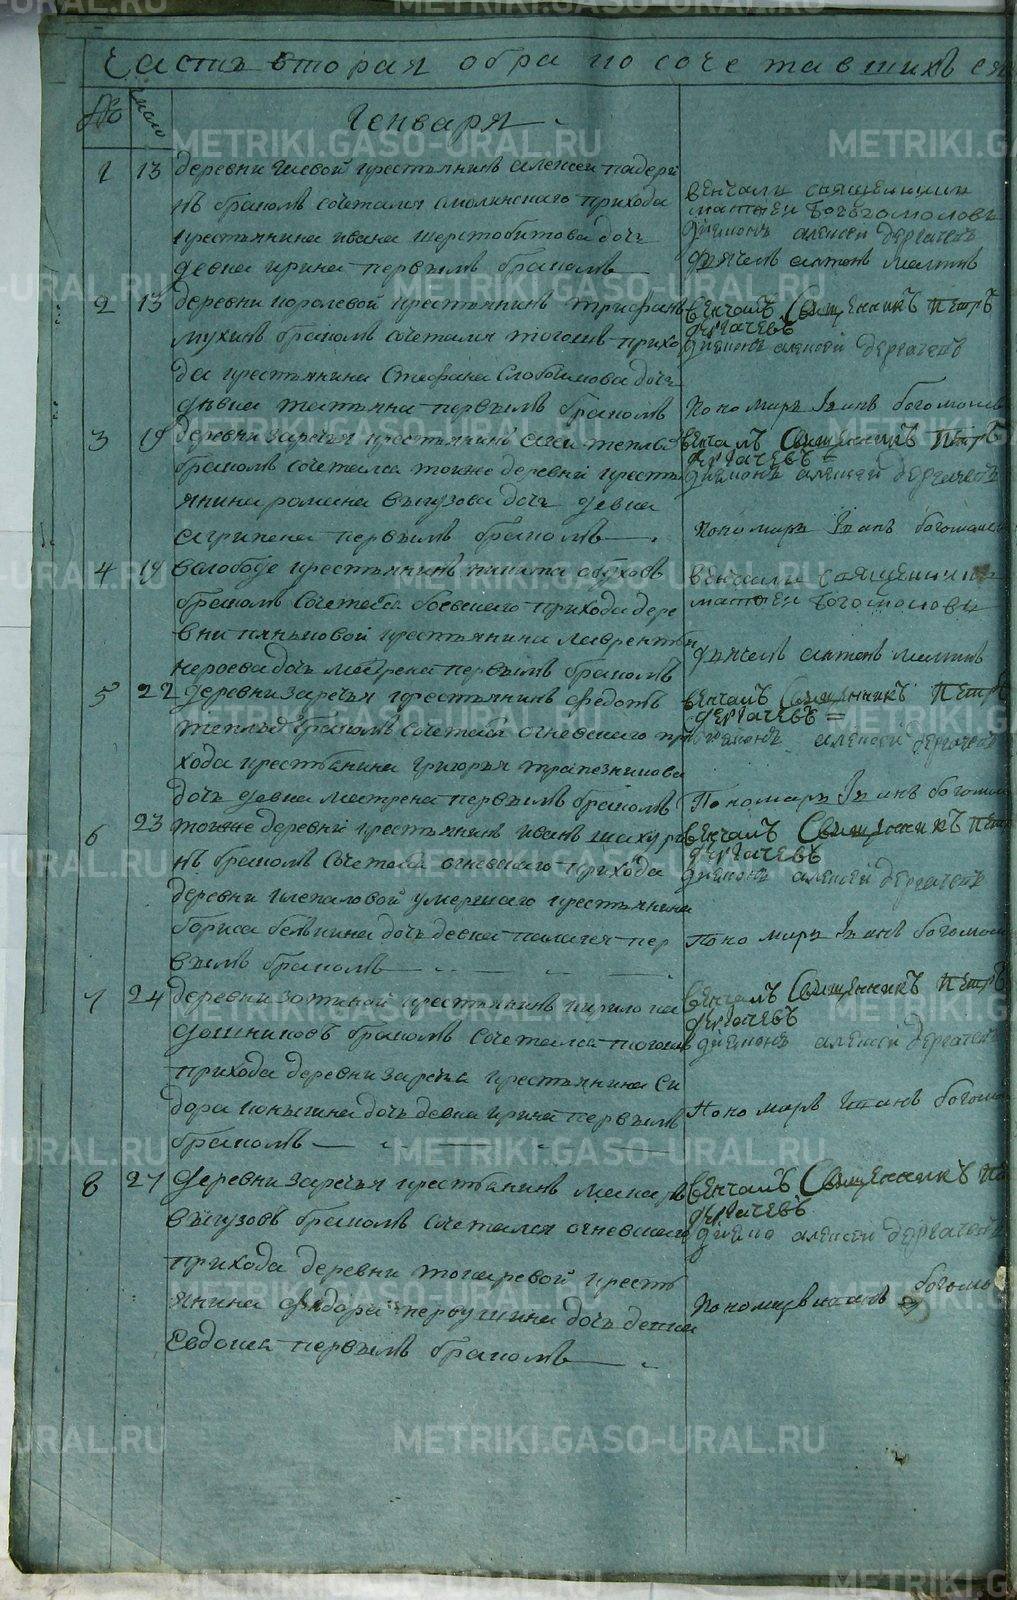 Часть вторая о бракосочетавшихся
№ число Генваря
1 13 деревни крестьянинъ алексеи
бракомъ сочетался смолинскаго прихода
крестьянина ивана шерстобитова дочь
девка ирина первымъ бракомъ
венчали священники
матфеи Богомоловъ
диаконъ алексеи дергачевъ
дьячекъ антонъ
2 13 деревни королевой крестьянинъ трифанъ
мухинъ бракомъ сочетался тогожъ прихо
да крестьянина Стефана дочь
девка татьяна первымъ бракомъ
венчалъ Священникъ петръ
дергачевъ
диаконъ алексеи дергачевъ
Пономарь Іванъ богомолов
3 19 деревни заречья крестьянинъ
бракомъ сочетался тоеже деревни кресть
янина романа выгузова дочь девка
агрипена первымъ бракомъ
венчалъ Священникъ Петръ
дергачевъ
диаконъ алексеи дергачевъ
пономарь Іванъ богомолов
4 19 слободе крестьянинъ никита обуховъ
бракомъ Сочетался боевскаго прихода дере
вни паньковой крестьянина лаврентья
дочь матрена первымъ бракомъ
венчали священники
матфеи богомоловъ
дьячекъ антонъ
5 22 деревни заречья крестьянинъ федотъ
бракомъ сочетался огневскаго при
хода крестьянина григорья трапезникова
дочь девка матрена первымъ бракомъ
венчалъ Священникъ Петръ
дергачевъ
диаконъ алексеи дергачевъ
Пономарь Іванъ богомол
6 23 тоеже деревни крестьянинъ иванъ
нъ бракомъ сочетался огневскаго прихода
деревни умершаго крестьянина
бориса дочь девка палагея пер
вымъ бракомъ
венчалъ Священникъ пет
дергачевъ
диаконъ алексеи дергачевъ
Пономарь Іванъ богомол
7 24 деревни крестьянинъ кирило ка
дошниковъ бракомъ сочетался тогожъ
прихода деревни заречья крестьянина Си
дора коныгина дочь девка ирина первымъ
бракомъ
венчалъ Священникъ петръ
дергачевъ
диаконъ алексеи дергачевъ
Пономарь Иванъ богомо
8 27 деревни заречья крестьянинъ макаръ
выгузовъ бракомъ сочетался огневскаго
прихода деревни токаревой кресть
янина федора первушина дочь девка
Евдокея первымъ бракомъ
венчалъ Священникъ
дергачевъ
алексеи дергачевъ
пономарь иванъ богомо
METRIKI.GASO-URAL.RU